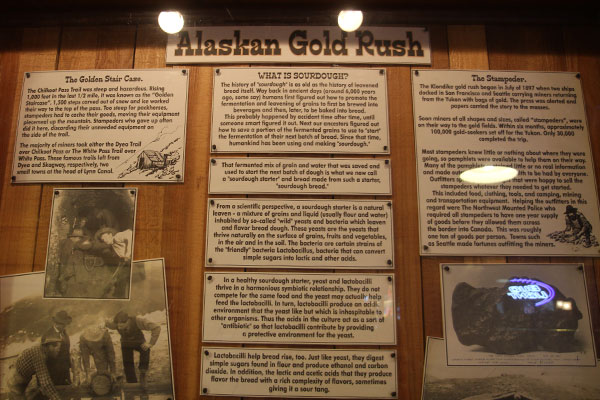 Alaskan Gold Rush
The Golden Stair Case.
The Chilkoot Pass Trail was steep and hazardous. Rising
1,000 feet in the last 1/2 mile, it was known as the "Golden
Staircase", 1,500 steps carved out of snow and ice worked
their way to the top of the pass. Too steep for packhorses,
stampeders had to cache their goods, moving their equipment
piecemeal up the mountain. Stampeders who gave up often
did it here, discarding their unneeded equipment on
the side of the trail.
The majority of miners took either the Dyea Trail
over Chilkoot Pass or The White Pass Trail over
White Pass. These famous trails left from
Dyea and Skagway, respectively, two
small towns at the head of Lynn Canal.
WHAT IS SOURDOUGH?
The history of "sourdough" is as old as the history of leavened
bread itself. Way back in ancient days (around 6,000 years
ago, some say) humans first figured out how to promote the
fermentation and leavening of grains to first be brewed into
beverages and then, later, to be baked into bread.
This probably happened by accident time after time, until
someone smart figured it out. Next our ancestors figured out
how to save a portion of the fermented grains to use to 'start'
the fermentation of their next batch of bread. Since that time,
humankind has been using and making "sourdough."
That fermented mix of grain and water that was saved and
used to start the next batch of dough is what we now call
a "sourdough starter" and bread made from such a starter,
"sourdough bread."
From a scientific perspective, a sourdough starter is a natural
leaven - a mixture of grains and liquid (usually flour and water)
inhabited by so-called "wild" yeasts and bacteria which leaven
and flavor bread dough. These yeasts are the yeasts that
thrive naturally on the surface of grains, fruits and vegetables,
in the air and in the soil. The bacteria are certain strains of
the "friendly" bacteria Lactobacillus, bacteria that can convert
simple sugars into lactic and other acids.
In a healthy sourdough starter, yeast and lactobacilli
thrive in a harmonious symbiotic relationship. They do not
compete for the same food and the yeast may actually help
feed the lactobacilli. In turn, lactobacilli produce an acidic
environment that the yeast like but which is inhospitable to
other organisms. Thus the acids in the culture act as a sort of
"antibiotic" so that lactobacilli contribute by providing
a protective environment for the yeast.
Lactobacilli help bread rise, too. Just like yeast, they digest
simple sugars found in flour and produce ethanol and carbon
dioxide. In addition, the lactic and acetic acids that they produce
flavor the bread with a rich complexity of flavors, sometimes
giving it a sour tang.
The Stampeder.
The Klondike gold rush began in July of 1897 when two ships
docked in San Francisco and Seattle carrying miners returning
from the Yukon with bags of gold. The press was alerted and
papers carried the story to the masses.
Soon miners of all shapes and sizes, called "stampeders", were
on their way to the gold fields. Within six months, approximately
100,000 gold-seekers set off for the Yukon. Only 30,000
completed the trip.
Most stampeders knew little or nothing about where they were
going, so pamphlets were available to help them on their way.
Many of the pamphlets little or no real information
and made out to be had by everyone.
Outfitters were happy to sell the
stampeders whatever they needed to get started.
This included food, clothing, tools, and camping, mining
and transportation equipment. Helping the outfitters in this
regard were The Northwest Mounted Police who
required all stampeders to have one year supply
of goods before they allowed them across
the border into Canada. This was roughly
one ton of goods per person. Towns such
as Seattle made fortunes outfitting the miners.